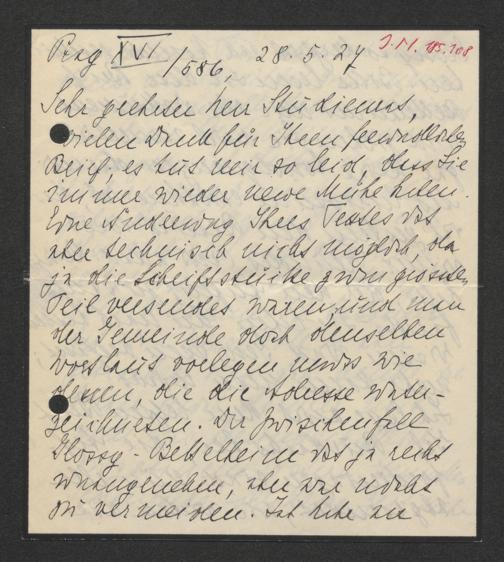 Prag XVI/586, 28.5.27
J.N. 185.108
Sehr geehrter Herr Studienrat,
vielen Dank für Ihren freundlichen
Brief, es tut mir so leid, dass Sie
immer wieder neue Mühe haben.
Eine Änderung Ihres Textes ist
aber technisch nicht möglich, da
ja die Schriftstücke zum grössten
Teil versendet waren und man
der Gemeinde doch denselben
Wortlaut vorlegen muss wie
denen, die die Adresse unter-
zeichneten. Der Zwischenfall
Glossy-Bettelheim ist ja recht
unangenehm, aber war nicht
zu vermeiden. Ich habe an